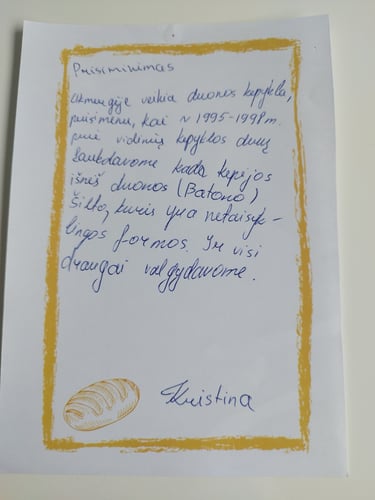 Prisiminimas
Akmenėje veikia duonos kepykla,
prisimenu, kai ~ 1995-1998 m.
prie vidinių kepyklos durų
Laukdavome kada kepėjos
išneš duonos (Batono)
Šilto, kuris yra netaisyk-
lingos formos. Ir visi
draugai valgydavome.
Kristina